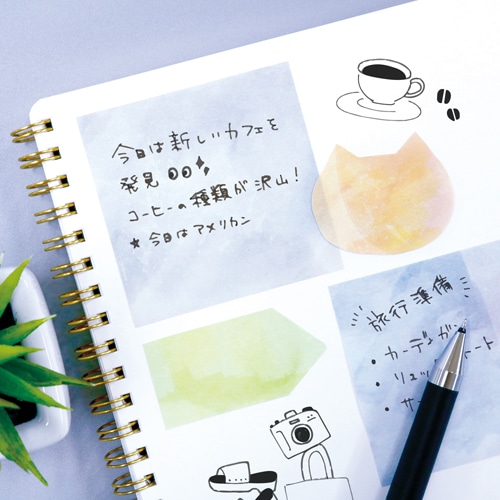 今日は新しいカフェを
発見
コーヒーの種類が沢山!
★今日はアメリカン
旅行準備
・カーディガン
・リュック